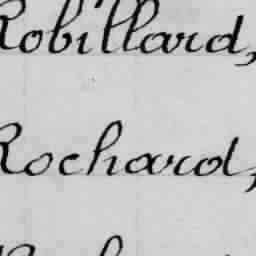 Robillard,
Rochard,